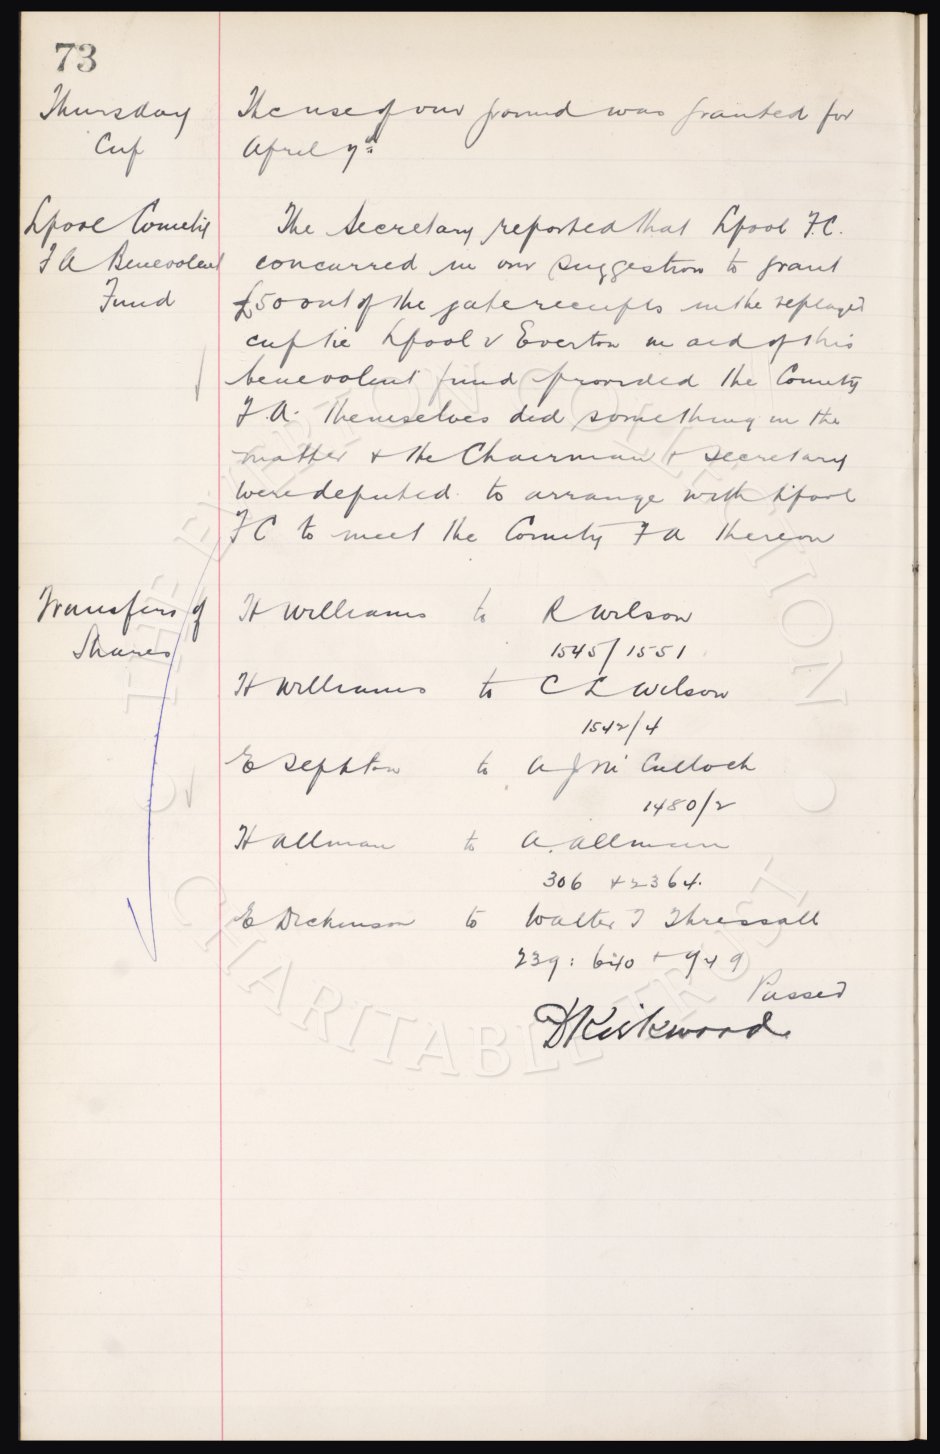 73
Thursday
Cup
The use of our ground was granted for
April 7th
Lpool County
F A Benevolent
Fund
The Secretary reported that Lpool F.C.
concurred in our suggestion to grant
£50 out of the gate receipts in the replayed
cup tie Lpool v Everton in aid of this
benevolent fund provided the County
F.A. themselves did something in the
matter & the Chairman & Secretary
were deputed to arrange with Lpool
F C to meet the County F A thereon
Transfers of
Shares
H Williams to R Wilson
1545/1551
H Williams to C L Wilson
1542/4
E Sephton to A J Mc Culloch
1480/2
H Allman to A. Allman
306 & 2364.
E Dickinson to Walter T Thressall
239: 640 +
Passed
D Kirkwood
THE EVERTON COLLECTION
CHARITABLE TRUST